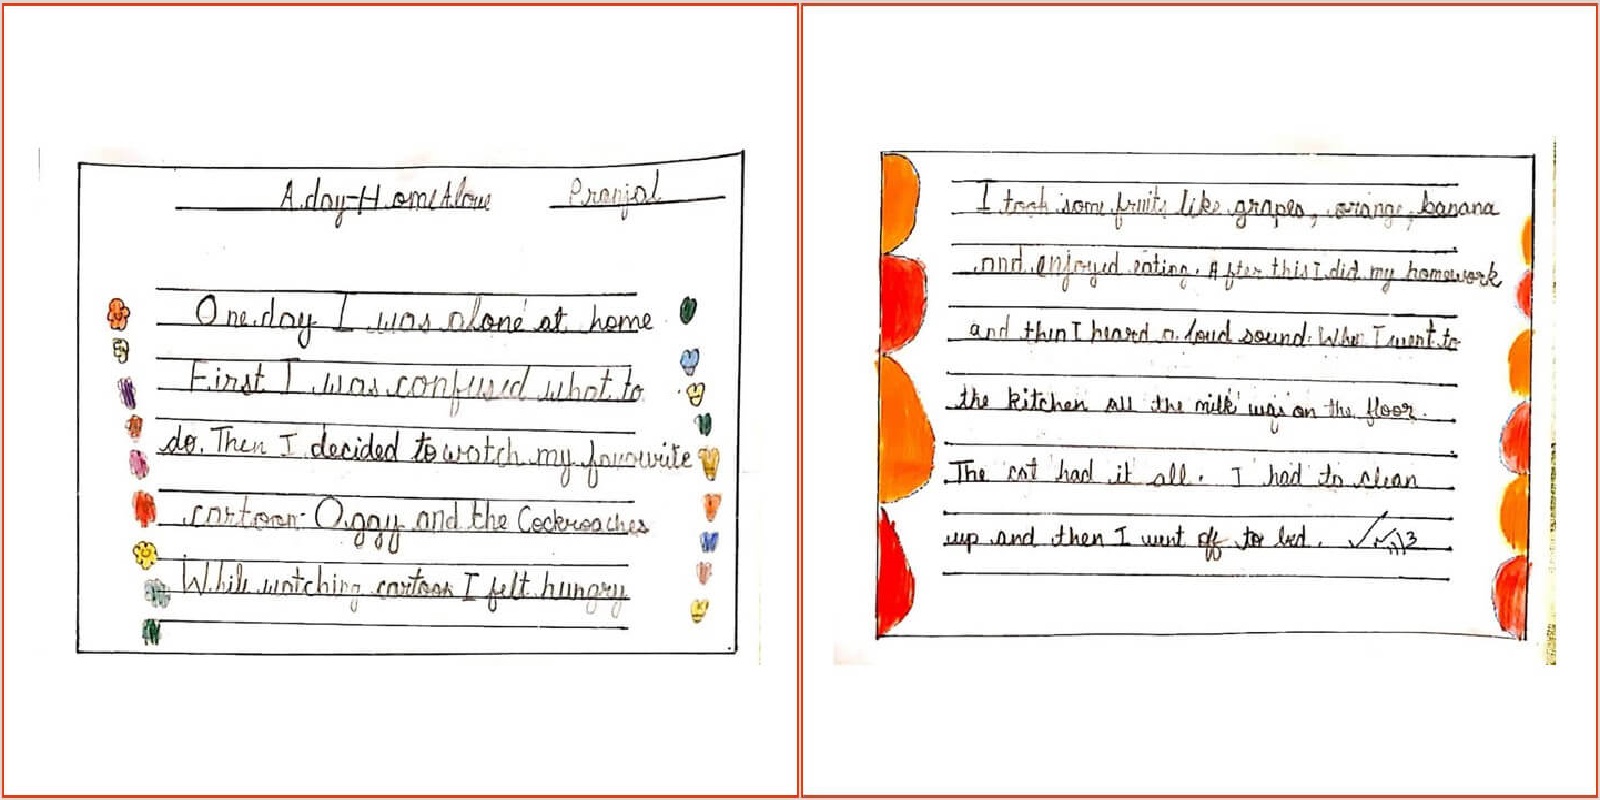 A day-Home Alone Pranjal
One day I was alone at home
First I was confused what to
do. Then I decided to watch my favourite
cartoon. Oggy and the Cockroaches
While watching cartoon I felt hungry
I took some fruits like grapes, orange, banana
and enjoyed eating. After this I did my homework
and then I heard a loud sound. When I went to
the kitchen all the milk was on the floor.
The cat had it all. I had to clean
up and then I went off to bed.